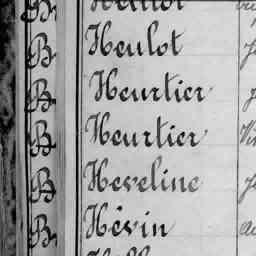 B Heulot
B Heurtier
B Heurtier
B Heveline
B Hévin